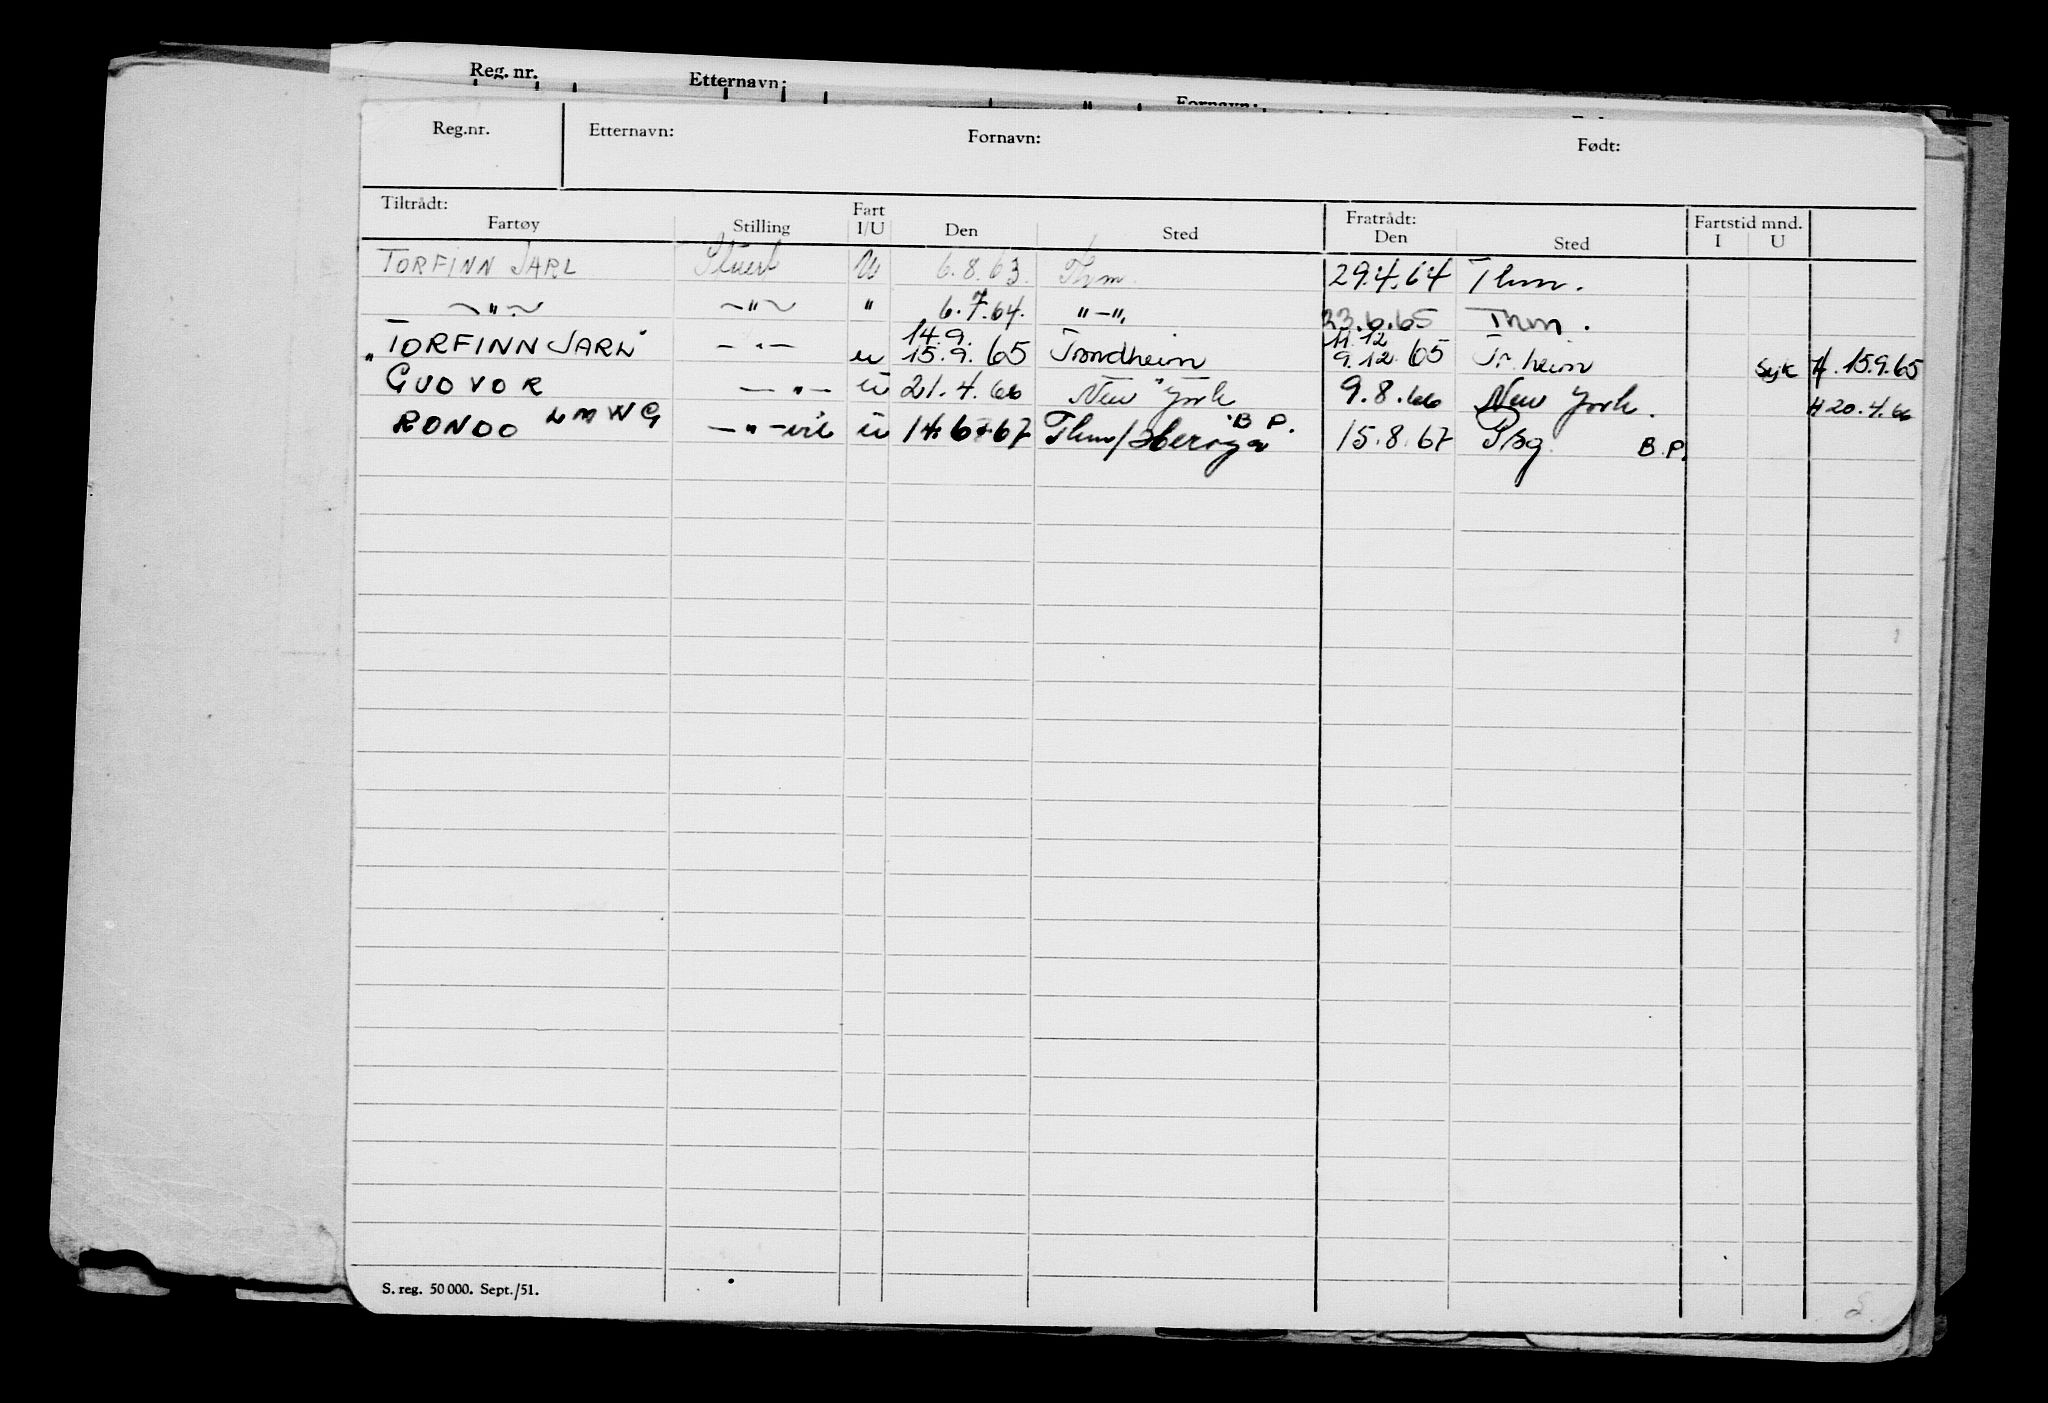 Reg. nr. Etternavn: Fornavn:
Reg.nr. Etternavn: Fornavn: Født:
Tiltrådt: Fart Fratrådt: Fartstid mnd.
Fartøy Stilling I/U Den Sted Den Sted I U
TORFINN JARL Stuert U 6.8.63. Thm. 29.4.64 Thm.
—"— —"— " 6.7.64. "—", 23.6.65 Thm.
14.9. 11.12
"TORFINN JARL" —"— u 15.9.65 Trondheim 9.12.65 Tr.heim Syk H. 15.9.65
GUDVOR —"— u 21.4.66 New York 9.8.66 New York. H 20.4.66
RONDO LMWG —"—vik u 14.6.67 Thm/Herøya B P. 15.8.67 Pbg B.P.
S. reg. 50 000. Sept./51.
2.